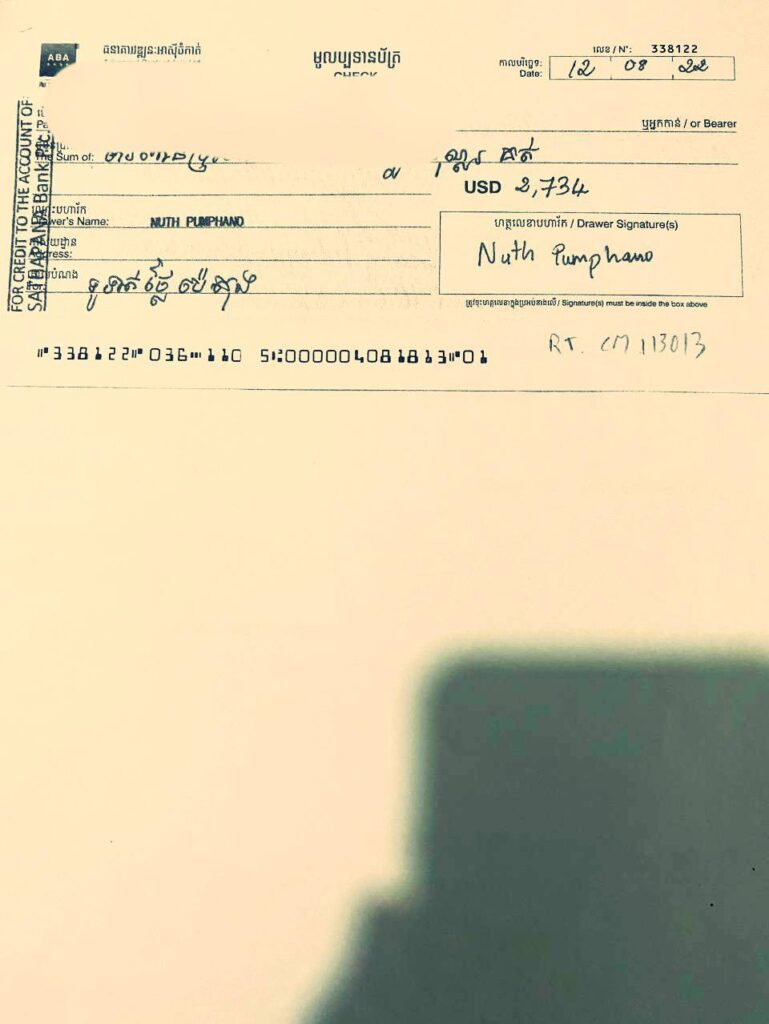 ABA
ធនាគារវឌ្ឍនៈអាស៊ីចំកាត់
មូលប្បទានប័ត្រ
CHECK
លេខ / N°: 338122
កាលបរិច្ឆេទ:
Date: 12 08 22
ឬអ្នកកាន់ / or Bearer
The Sum of:
ដុល្លារ គត់
USD 2,734
ឈ្មោះបហារីក
NUTH PUMPHANO
ហត្ថលេខាបហារីក / Drawer Signature(s)
Nuth Pumphano
អាសយដ្ឋាន
ត្រូវចុះហត្ថលេខាក្នុងប្រអប់ខាងលើ / Signature(s) must be inside the box above
FOR CREDIT TO THE ACCOUNT OF:
SATHAPANA Bank Plc.
⑈338122⑈036⑉110 5⑆000004081813⑈01
RT. CM 113013